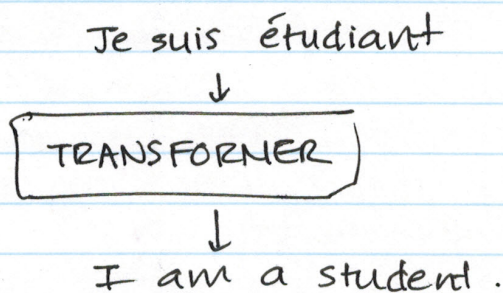 Je suis étudiant
TRANSFORMER
I am a student.